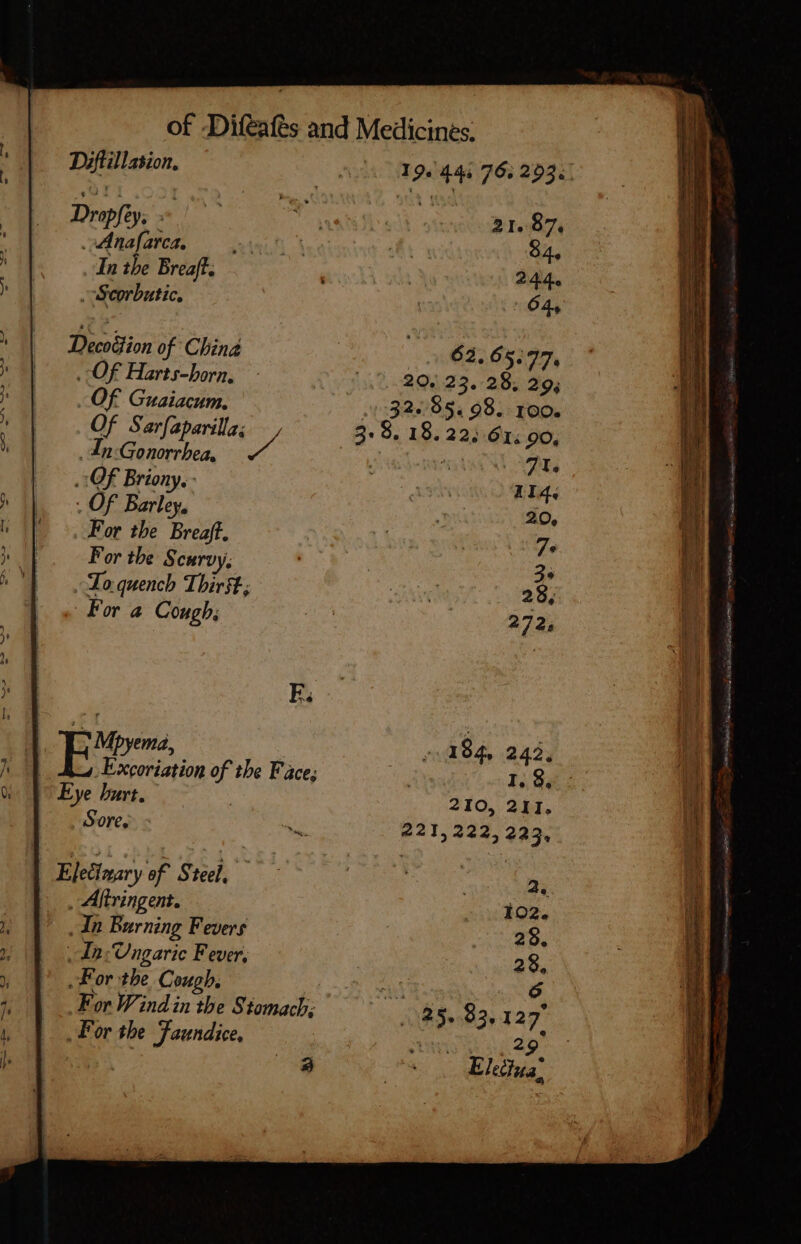 of Diſeaſes and Medicines.
Diſtillation. 19. 44. 76. 293.
Dropſey. 21. 87.
Anaſarca. 84.
In the Breaſt. 244.
Scorbutic. 64.
Decoction of China 62. 65. 77.
Of Harts-horn. 20. 23. 28. 29.
Of Guaiacum. 32. 85. 98. 100.
Of Sarſaparilla. 3. 8. 18. 22. 61. 90.
In Gonorrhea. 71.
Of Briony. 114.
Of Barley. 20.
For the Breaſt. 7.
For the Scurvy. 3.
To quench Thirst. 28.
For a Cough. 272.
E.
EMpyema, 184. 242.
Excoriation of the Face. 1. 8.
Eye hurt. 210, 211.
Sore. 221, 222, 223.
Electuary of Steel. 2.
Aſtringent. 102.
In Burning Fevers 28.
In Ungaric Fever. 28.
For the Cough. 6
For Wind in the Stomach. 25. 83. 127
For the Jaundice. 29
a Electua-